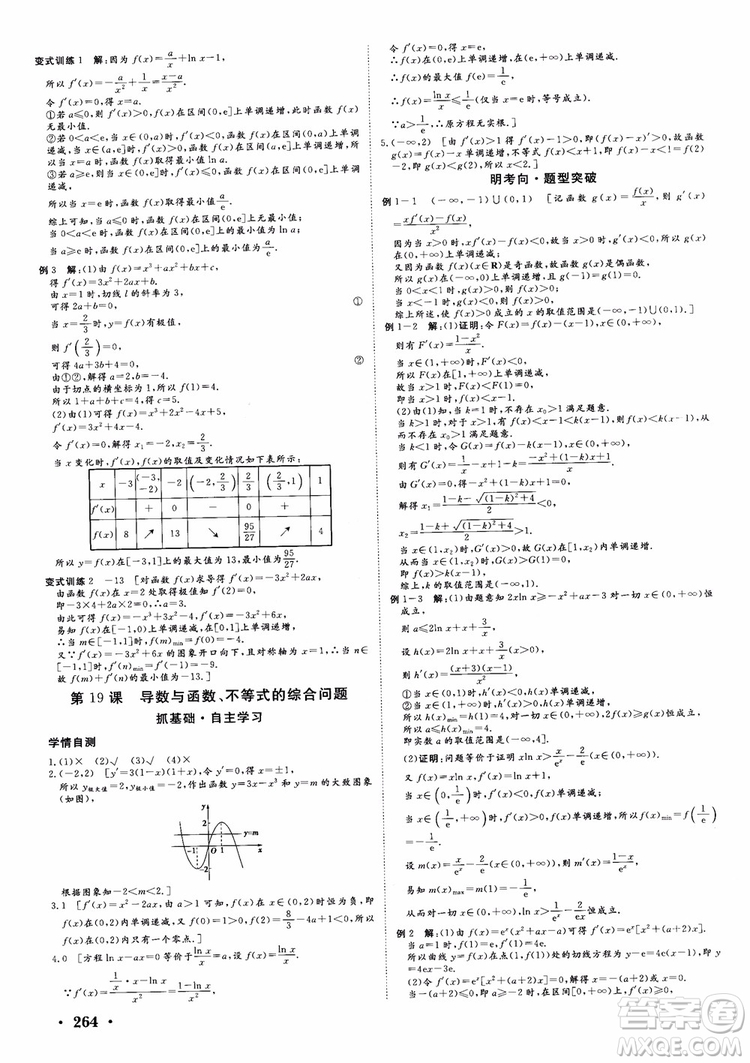 变式训练1 解:因为 f(x)=a/x+ln x-1,
所以 f′(x)=-a/x²+1/x=(x-a)/x².
令 f′(x)=0,得 x=a.
①若 a≤0,则 f′(x)>0,f(x)在区间(0,e]上单调递增,此时函数 f(x)
无最小值.
②若 0<a<e,当 x∈(0,a)时,f′(x)<0,函数 f(x)在区间(0,a)上单调
递减,当 x∈(a,e]时,f′(x)>0,函数 f(x)在区间(a,e]上单调递增,
所以当 x=a 时,函数 f(x)取得最小值 ln a.
③若 a≥e,则当 x∈(0,e]时,f′(x)≤0,函数 f(x)在区间(0,e]上单调
递减,
所以当 x=e 时,函数 f(x)取得最小值 a/e.
综上可知,当 a≤0 时,函数 f(x)在区间(0,e]上无最小值;
当 0<a<e 时,函数 f(x)在区间(0,e]上的最小值为 ln a;
当 a≥e 时,函数 f(x)在区间(0,e]上的最小值为 a/e.
例3 解:(1)由 f(x)=x³+ax²+bx+c,
得 f′(x)=3x²+2ax+b.
由 x=1 时,切线 l 的斜率为 3,
可得 2a+b=0. ①
当 x=2/3 时,y=f(x)有极值,
则 f′(2/3)=0,
可得 4a+3b+4=0. ②
由①②,解得 a=2,b=-4.
由于切点的横坐标为 1,所以 f(1)=4.
所以 1+a+b+c=4,得 c=5.
(2)由(1)可得 f(x)=x³+2x²-4x+5,
f′(x)=3x²+4x-4.
令 f′(x)=0,解得 x₁=-2,x₂=2/3.
当 x 变化时,f(x),f′(x)的取值及变化情况如下表所示:
x -3 (-3,-2) -2 (-2,2/3) 2/3 (2/3,1) 1
f′(x) + 0 - 0 +
f(x) 8 ↗ 13 ↘ 95/27 ↗ 4
所以 y=f(x)在[-3,1]上的最大值为 13,最小值为 95/27.
变式训练2 -13 [对函数 f(x)求导得 f′(x)=-3x²+2ax,
由函数 f(x)在 x=2 处取得极值知 f′(2)=0,
即-3×4+2a×2=0,∴a=3.
由此可得 f(x)=-x³+3x²-4,f′(x)=-3x²+6x,
易知 f(x)在(-1,0)上单调递减,在(0,1)上单调递增,
∴当 m∈[-1,1]时,f(m)min=f(0)=-4.
又∵f′(x)=-3x²+6x 的图象开口向下,且对称轴为 x=1,∴当 n∈
[-1,1]时,f′(n)min=f′(-1)=-9.
故 f(m)+f′(n)的最小值为-13.]
第19课 导数与函数、不等式的综合问题
抓基础·自主学习
学情自测
1.(1)× (2)√ (3)√ (4)×
2.(-2,2) [y′=3(1-x)(1+x),令 y′=0 得 x=±1,
所以 y极大值=2,y极小值=-2,作出函数 y=3x-x³ 和 y=m 的大致图象
(如图),
y 2 -1 O 1 x
根据图象知-2<m<2.]
3.1 [f′(x)=x²-2ax,由 a>1 可知,f′(x)在 x∈(0,2)时恒为负,
即 f(x)在(0,2)内单调递减,又 f(0)=1>0,f(2)=8/3-4a+1<0,
所以 f(x)在(0,2)上只有一个零点.]
4.0 [方程 ln x=ax 等价于 a=ln x/x,设 f(x)=ln x/x.
∵f′(x)=(1/x·x-ln x)/x²=(1-ln x)/x²,
264
令 f′(x)=0,得 x=e,
∴f(x)在(0,e)上单调递增,在(e,+∞)上单调递减.
∴f(x)的最大值 f(e)=1/e,
∴f(x)=ln x/x≤1/e(仅当 x=e 时,等号成立).
∵a>1/e,∴原方程无实根.]
5.(-∞,2) [由 f′(x)>1,可得 f′(x)-1>0,即(f(x)-x)′>0,故函数
g(x)=f(x)-x 单调递增,不等式 f(x)<x+1,即 f(x)-x<1=f(2)
-2,所以 x<2.]
明考向·题型突破
例1-1 (-∞,-1)∪(0,1) [记函数 g(x)=f(x)/x,则 g′(x)
=(xf′(x)-f(x))/x².
因为当 x>0 时,xf′(x)-f(x)<0,
故当 x>0 时,g′(x)<0,所以 g(x)在(0,+∞)上单调递减.
又因为函数 f(x)(x∈R)是奇函数,故函数 g(x)是偶函数,
所以 g(x)在(-∞,0)上单调递增,且 g(-1)=g(1)=0.
当 0<x<1 时,g(x)>0,则 f(x)>0;
当 x<-1 时,g(x)<0,则 f(x)>0,
综上所述,使得 f(x)>0 成立的 x 的取值范围是(-∞,-1)∪(0,1).]
例1-2 解:(1)证明:令 F(x)=f(x)-(x-1),x∈(0,+∞).
则有 F′(x)=(1-x²)/x.
当 x∈(1,+∞)时,F′(x)<0,
所以 F(x)在(1,+∞)上单调递减,
故当 x>1 时,F(x)<F(1)=0,
即当 x>1 时,f(x)<x-1.
(2)由(1)知,当 k=1 时,不存在 x₀>1 满足题意.
当 k>1 时,对于 x>1,有 f(x)<x-1<k(x-1),
则 f(x)<k(x-1),从而不存在 x₀>1 满足题意.
当 k<1 时,令 G(x)=f(x)-k(x-1),x∈(0,+∞),
则有 G′(x)=1/x-x+1-k=(-x²+(1-k)x+1)/x.
由 G′(x)=0 得,-x²+(1-k)x+1=0.
解得 x₁=(1-k-√((1-k)²+4))/2<0,
x₂=(1-k+√((1-k)²+4))/2>1.
所以当 x∈(1,x₂)时,G′(x)>0,故 G(x)在(1,x₂)内单调递增.
从而当 x∈(1,x₂)时,G(x)>G(1)=0,即 f(x)>k(x-1).
综上,k 的取值范围是(-∞,1).
例1-3 解:(1)由题意知 2xln x≥-x²+ax-3 对一切 x∈(0,+∞)恒
成立,
则 a≤2ln x+x+3/x.
设 h(x)=2ln x+x+3/x(x>0),
则 h′(x)=(x+3)(x-1)/x².
①当 x∈(0,1)时,h′(x)<0,h(x)单调递减;
②当 x∈(1,+∞)时,h′(x)>0,h(x)单调递增.
所以 h(x)min=h(1)=4,
所以 a≤h(x)min=4,
即实数 a 的取值范围是(-∞,4].
(2)证明:问题等价于证明 xln x>x/eˣ-2/e(x∈(0,+∞)).
又 f(x)=xln x,f′(x)=ln x+1,
当 x∈(0,1/e)时,f′(x)<0,f(x)单调递减;
当 x∈(1/e,+∞)时,f′(x)>0,f(x)单调递增,所以 f(x)min=f(1/e)
=-1/e.
设 m(x)=x/eˣ-2/e(x∈(0,+∞)),则 m′(x)=(1-x)/eˣ,
易知 m(x)max=m(1)=-1/e,
从而对一切 x∈(0,+∞),都有 ln x>1/eˣ-2/(ex)成立.
例2 解:(1)由 f(x)=eˣ(x²+ax-a)可得 f′(x)=eˣ[x²+(a+2)x].
当 a=1 时,f(1)=e,f′(1)=4e.
所以曲线 y=f(x)在点(1,f(1))处的切线方程为 y-e=4e(x-1),即 y
=4ex-3e.
(2)令 f′(x)=eˣ[x²+(a+2)x]=0,解得 x=-(a+2)或 x=0.
当-(a+2)≤0,即 a≥-2 时,在区间[0,+∞)上,f′(x)≥0,所以
答案圈
MXQE.COM